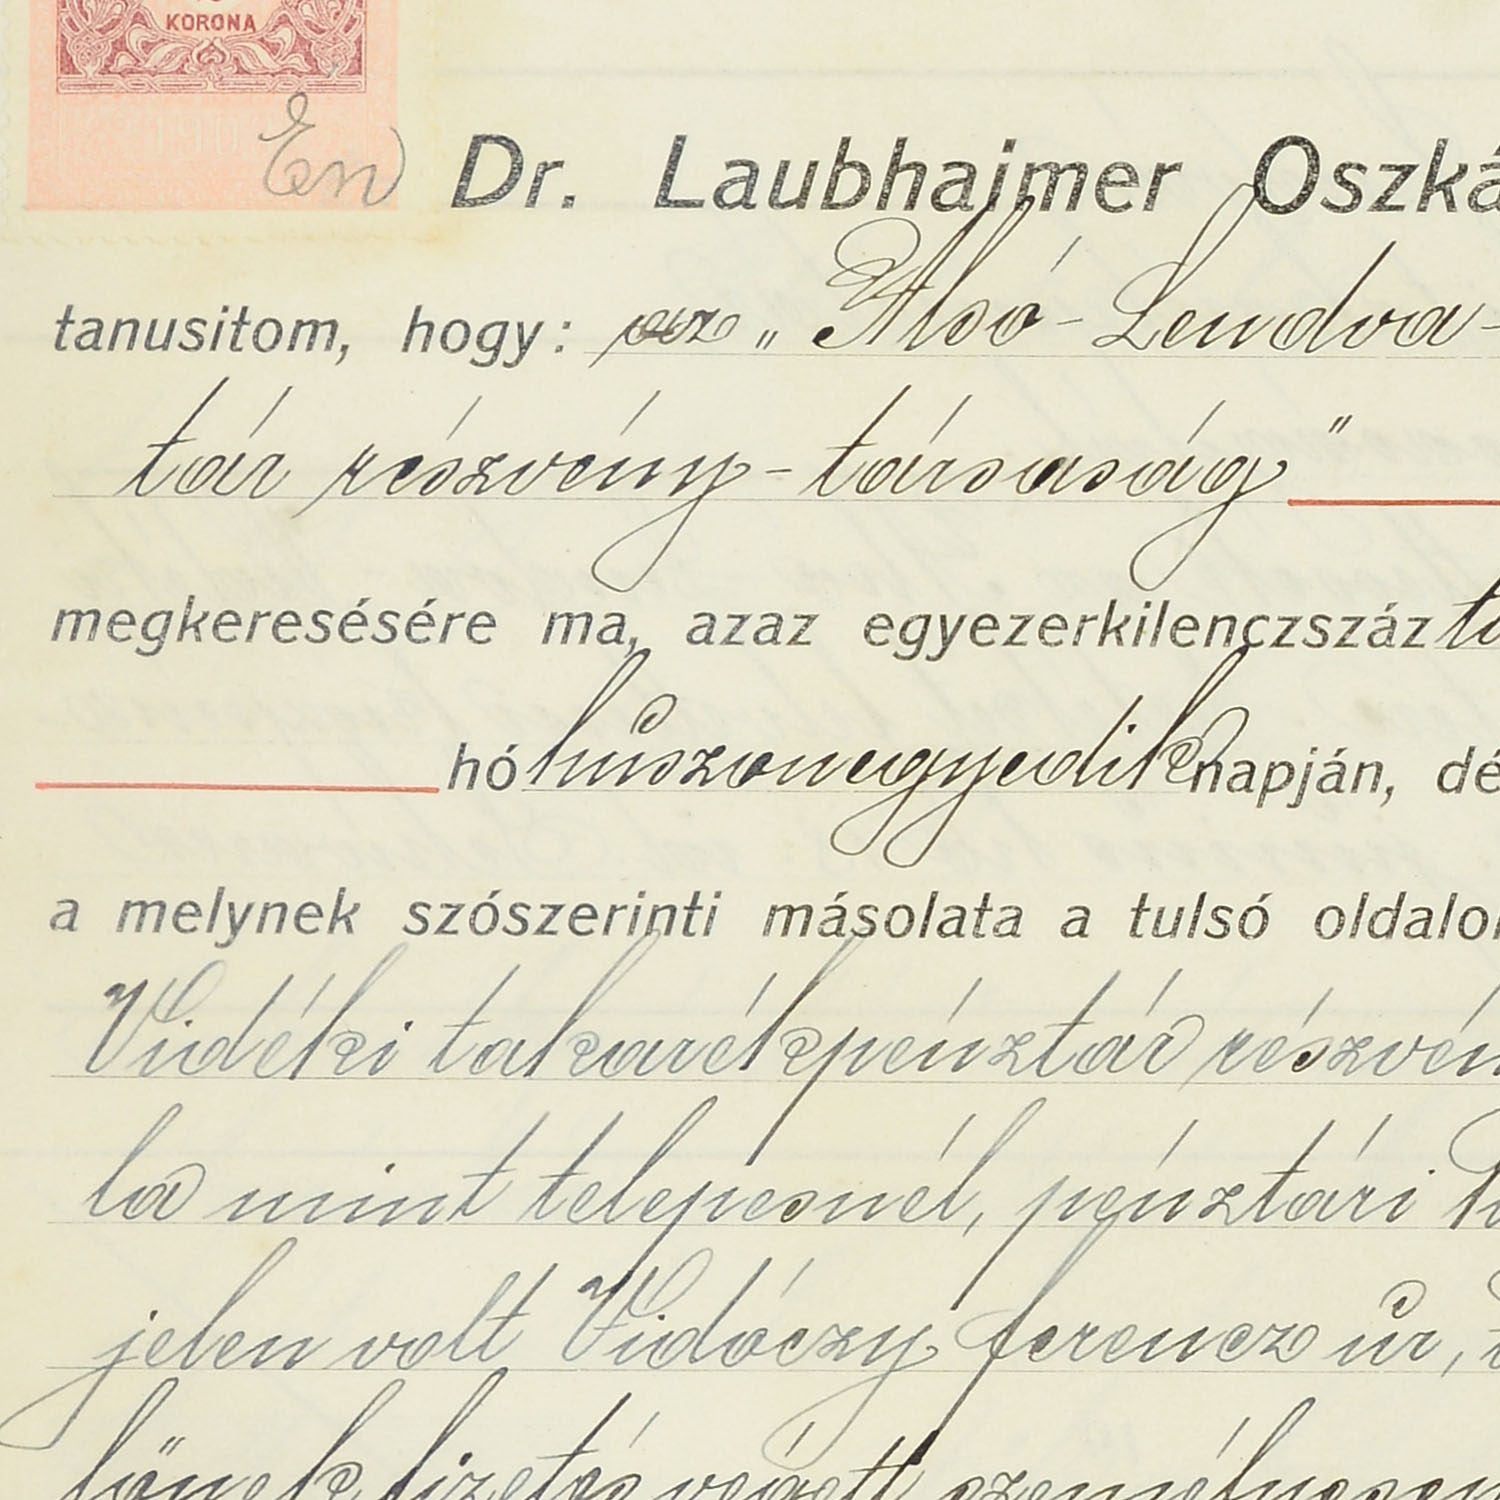 KORONA
En Dr. Laubhaimer Oszká
tanusitom, hogy: az „Alsó-Lendva-
tár részvény-társaság"
megkeresésére ma, azaz egyezerkilenczszáz
hó húszonegyedik napján, dé
a melynek szószerinti másolata a tulsó oldalon
Vidéki takarékpénztár részvén
la mint telepesnél, pénztári
jelen volt Vidóczy Ferencz úr,
lönek fizetés végett személyesen